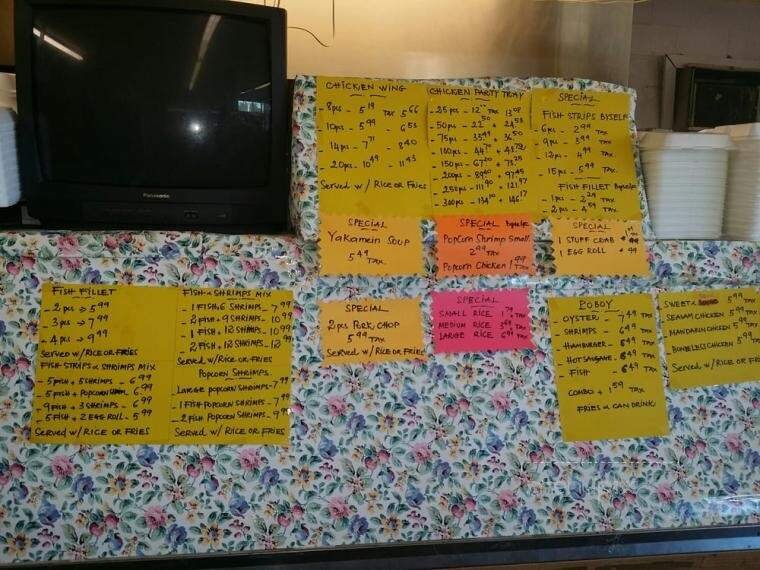 CHICKEN WING
- 8pcs - 5.19 TAX 5.66
- 10pcs - 5.99 - 6.53
- 14pcs - 7.71 - 8.40
- 20pcs - 10.49 - 11.43
Served w/ RICE OR FRIES
CHICKEN PARTY TRAY
- 25 pcs - 12 TAX 13.08
- 50 pcs - 22.50 + 24.53
- 75 pcs - 33.49 + 36.50
- 100 pcs - 44.70 + 48.72
- 150 pcs - 67.20 + 73.25
- 200 pcs - 89.40 + 97.45
- 250 pcs - 111.90 + 121.97
- 300 pcs - 134.10 + 146.17
SPECIAL
FISH STRIPS BYSELF
6 pcs - 2.99 TAX
9 pcs - 3.99 TAX
12 pcs - 4.99 TAX
- 15 pcs - 5.99 TAX
FISH FILLET Byself
- 1 pcs - 2.29 TAX
- 2 pcs - 4.59 TAX
Panasonic
SPECIAL
YAKAMEIN SOUP
5.49 TAX
SPECIAL Byself
Popcorn Shrimp Small
2.99 TAX
Popcorn Chicken 1.99 TAX
SPECIAL
1 STUFF CRAB
1 EGG ROLL + .99
FISH FILLET
- 2 pcs → 5.99
- 3 pcs → 7.99
- 4 pcs → 9.49
SERVED w/ RICE OR FRIES
FISH STRIPS & SHRIMPS MIX
- 5 FISH + 5 SHRIMPS - 6.99
- 5 FISH + POPCORN SHRIM. 6.99
- 9 FISH + 3 SHRIMPS - 6.99
- 5 FISH + 2 EGG ROLL - 5.99
SERVED w/ RICE OR FRIES
FISH & SHRIMPS MIX
- 1 FISH + 6 SHRIMPS - 7.99
- 2 FISH + 9 SHRIMPS - 10.99
- 1 FISH + 12 SHRIMPS - 10.99
- 2 FISH + 12 SHRIMPS - 12
SERVED w/ RICE OR FRIES
POPCORN SHRIMPS
LARGE POPCORN SHRIMPS - 7.99
- 1 FISH POPCORN SHRIMPS - 7.99
- 2 FISH POPCORN SHRIMPS - 9.99
SERVED w/ RICE OR FRIES
SPECIAL
2 pcs PORK CHOP
5.99 TAX
SERVED w/ RICE OR FRIES
SPECIAL
SMALL RICE 1.79 TAX
MEDIUM RICE 3.69 TAX
LARGE RICE 6.49 TAX
POBOY
- OYSTER - 7.49 TAX
SHRIMPS - 6.49 TAX
- HAMBURGER - 5.49 TAX
- HOT SAUSAGE - 6.49 TAX
- FISH - 6.49 TAX
COMBO + 1.59 TAX
FRIES & CAN DRINK
SWEET & 5.99 TAX
SESAME CHICKEN 5.99 TAX
MANDARIN CHICKEN 5 TAX
BONELESS CHICKEN 5.99 TAX
SERVED w/ RICE OR FR